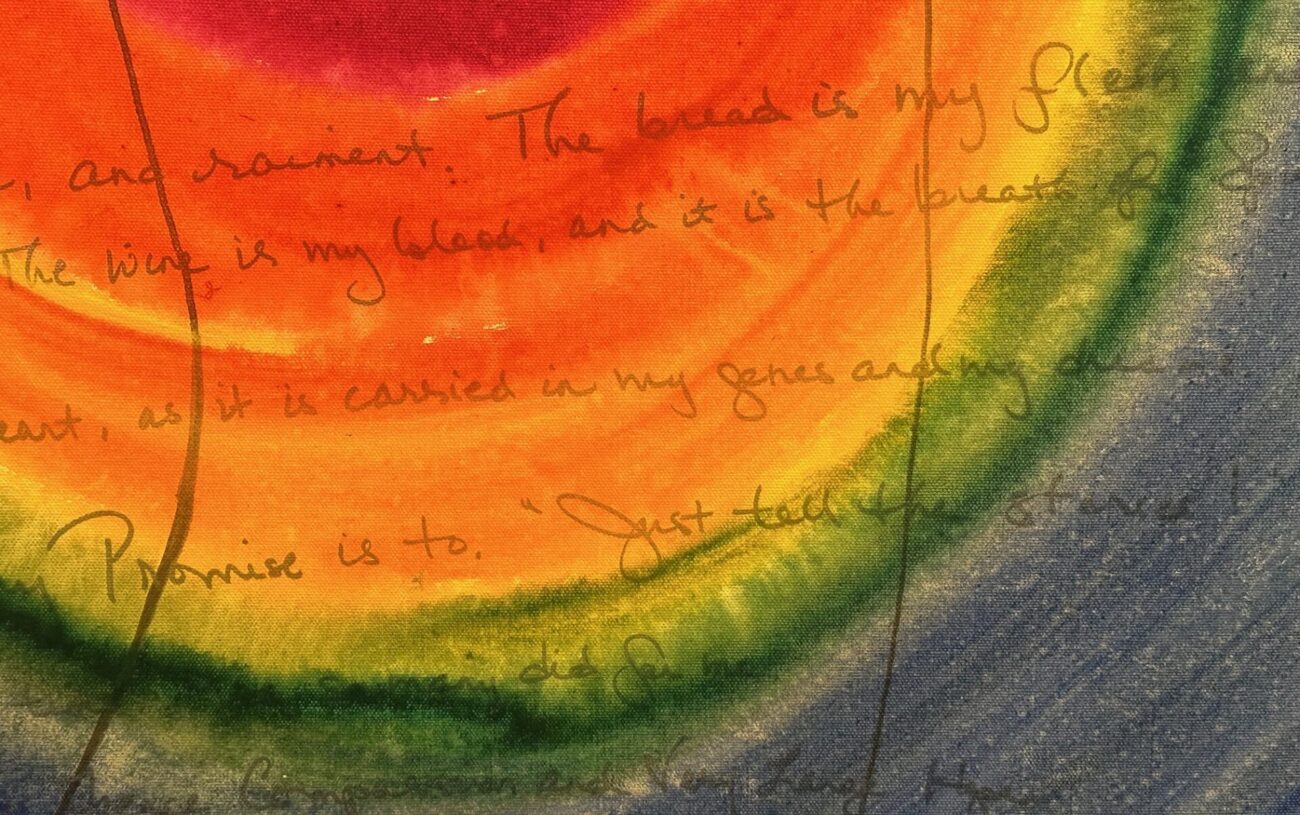 , and raiment. The bread is my flesh
The wine is my blood, and it is the breath of
eart, as it is carried in my genes and my
Promise is to. "Just tell the
many did for
Compassion and Very Large Hope